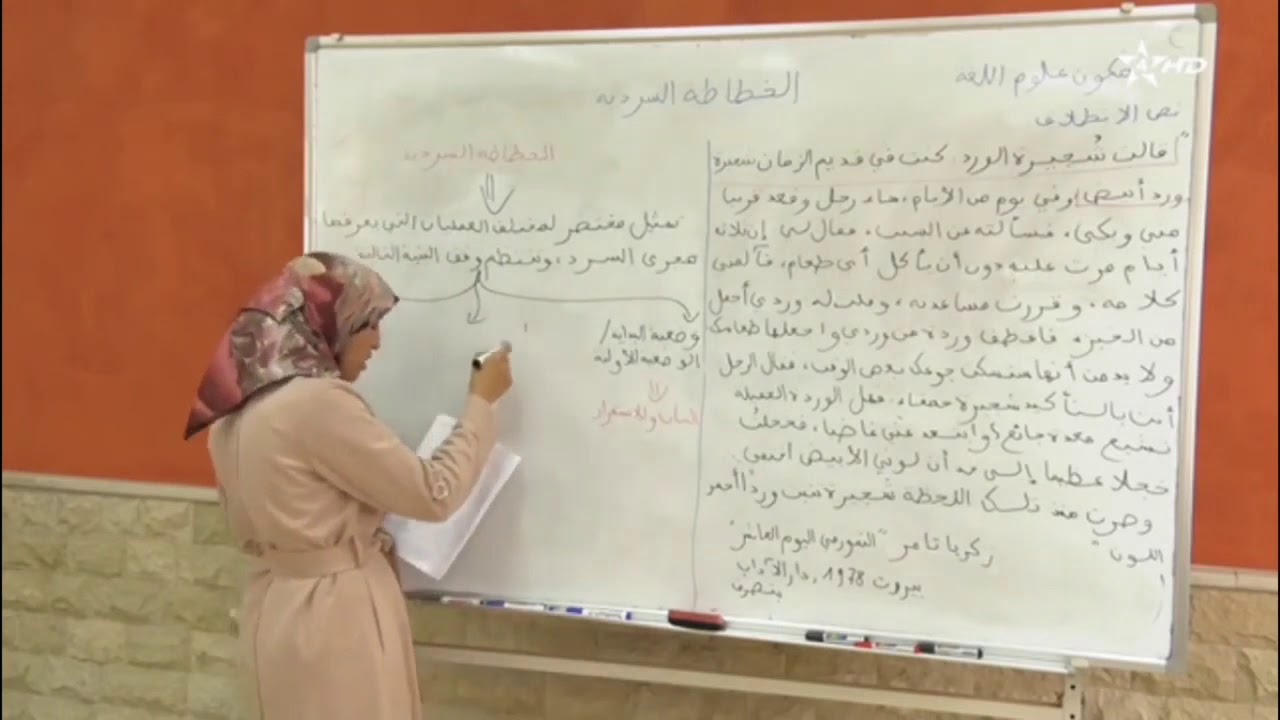 مكون علوم اللغة
الخطاطة السردية
نص الانطلاق
"قالت شُجيرة الورد: كنت في قديم الزمان شجيرة
ورد أبيض، وفي يوم من الأيام، جاء رجل وقعد قريبا
مني وبكى، فسألته عن السبب، فقال لي إن ثلاثة
أيام مرت عليه دون أن يأكل أي طعام، فآلمني
كلامه، وقررت مساعدته، وقلت له وردي أجمل
من الخبز، فاقطف وردة من وردي واجعلها طعامك
ولا بد من أنها ستسكت جوعك بعض الوقت، فقال الرجل
أنت بالتأكيد شجيرة حمقاء، فهل الوردة الجميلة
تشبع معدة جائع؟ وابتعد عني غاضبا، فخجلتُ
خجلا عظيما إلى حد أن لوني الأبيض اختفى
وصرت منذ تلك اللحظة شجيرة تنبت وردًا أحمر
اللون"
زكريا تامر "النمور في اليوم العاشر"
بيروت 1978، دار الآداب
بتصرف
الخطاطة السردية
تمثيل مختصر لمختلف العمليات التي يعرفها
مجرى السرد، وتنتظم وفق البنية التالية
وضعية البداية/
الوضعية الأولية
الثبات والاستقرار
HD